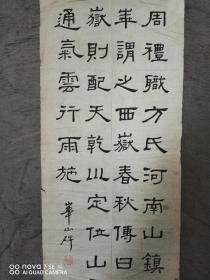 周禮職方氏河南山鎮
華謂之西嶽春秋傳曰
嶽則配天乾川定位山
通氣雲行雨施
華山碑
REDMI NOTE 7